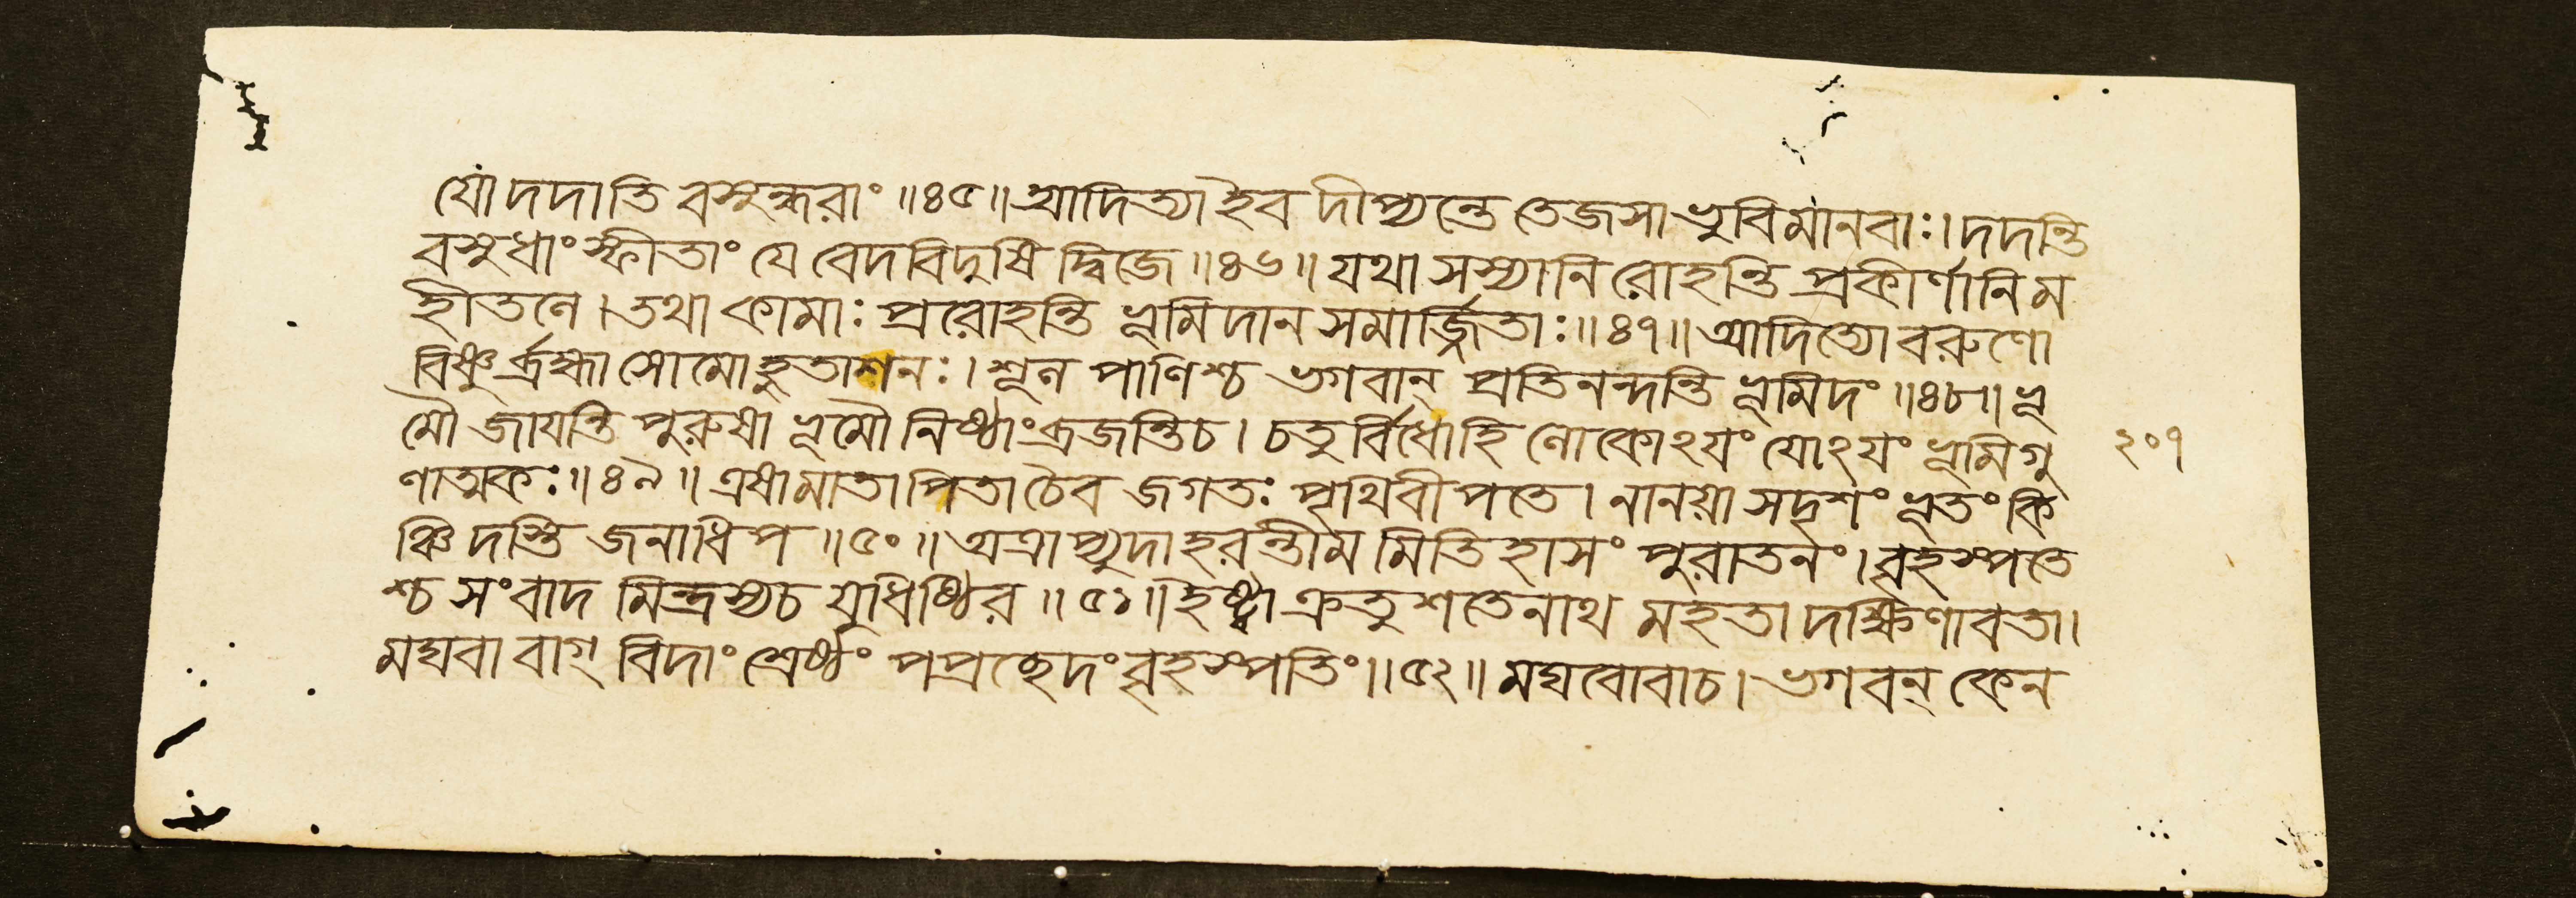 যো দদাতি বসুন্ধরাং ॥ ৪৫ ॥ আদিত্যা ইব দীপ্যন্তে তেজসা ভুবি মানবাঃ । দদন্তি
বসুধাং স্ফীতাং যে বেদবিদুষি দ্বিজে ॥ ৪৬ ॥ যথা সস্যানি রোহন্তি প্রকীর্ণানি ম
হীতলে । তথা কামাঃ প্ররোহন্তি ভূমিদান সমার্জ্জিতাঃ ॥ ৪৭ ॥ আদিত্যো বরুণো
বিষ্ণুর্ব্রহ্মা সোমো হুতাশনঃ । শূলপাণিশ্চ ভগবান্ প্রতিনন্দন্তি ভূমিদং ॥ ৪৮ ॥ ভূ
মৌ জায়ন্তি পুরুষা ভূমৌ নিষ্ঠাং ব্রজন্তি চ । চতুর্বিধো হি লোকোঽয়ং যোঽয়ং ভূমিগু
ণাত্মকঃ ॥ ৪৯ ॥ এষা মাতা পিতা চৈব জগতঃ পৃথিবীপতে । নানয়া সদৃশং ভূতং কি
ঞ্চিদস্তি জনাধিপ ॥ ৫০ ॥ অত্রাপ্যুদাহরন্তীমমিতিহাসং পুরাতনং । বৃহস্পতে
শ্চ সংবাদমিন্দ্রস্য চ যুধিষ্ঠির ॥ ৫১ ॥ ইষ্ট্বা ক্রতুশতেনাথ মহতা দক্ষিণাবতা ।
মঘবা বাগ্ বিদাং শ্রেষ্ঠং পপ্রচ্ছেদং বৃহস্পতিং ॥ ৫২ ॥ মঘবোবাচ । ভগবন্ কেন
২০৭